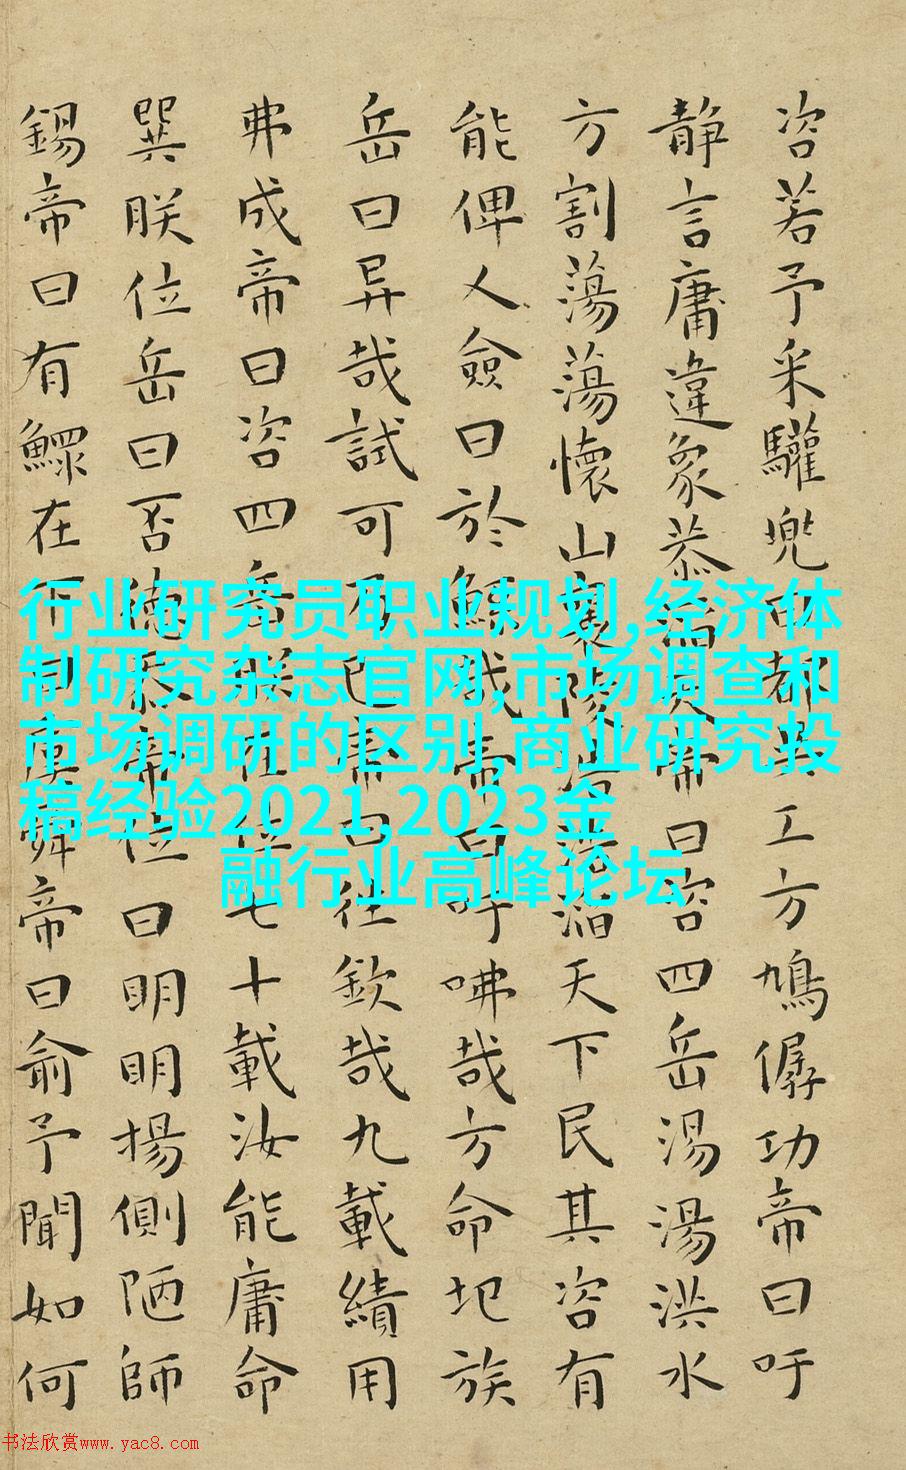 咨若予采驩兜曰都共工方鳩僝功帝曰吁
静言庸違象恭滔天帝曰咨四岳湯湯洪水
方割蕩蕩懷山襄陵浩浩滔天下民其咨有
能俾乂僉曰於鯀哉帝曰吁咈哉方命圯族
岳曰异哉試可乃已帝曰往欽哉九載績用
弗成帝曰咨四岳朕在位七十載汝能庸命
巽朕位岳曰否德忝帝位曰明明揚側陋師
錫帝曰有鰥在下曰虞舜帝曰俞予聞如何
行业研究员职业规划,经济体
制研究杂志官网,市场调查和
市场调研的区别,商业研究投
稿经验2021,2023金
融行业高峰论坛
书法欣赏www.yac8.com